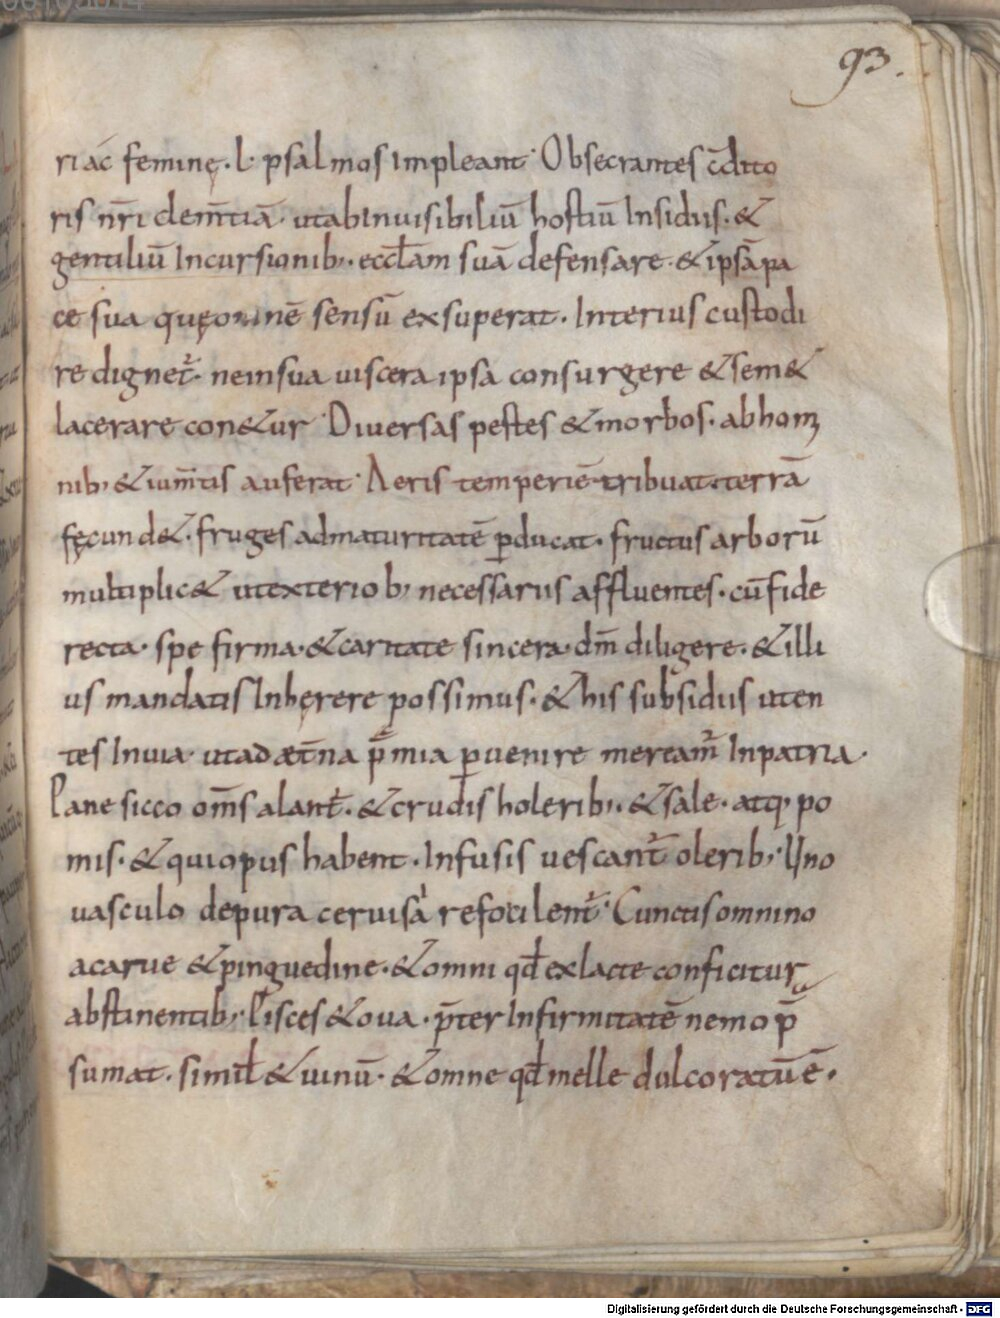 93.
ri ac feminę. L. psalmos impleant. Obsecrantes c̄dito
ris nr̄i clem̄tiā. ut ab invisibiliū hostiū insidiis. &
gentiliū incursionib; eccl̄am suā defensare. & ipsā pa
ce sua quę omnē sensū exsuperat. Interius custodi
re dignet̄. ne in sua viscera ipsa consurgere & sem&
lacerare con&ur. Diversas pestes & morbos. ab homi
nib; & ium̄tis auferat. Aeris temperiē tribuat. terrā
fęcund&. fruges ad maturitatē p̱ducat. fructus arborū
multiplic& ut exteriob; necessariis affluentes. cū fide
recta. spe firma. & caritate sincera. dm̄ diligere. & illi
us mandatis inhęrere possimus. & his subsidiis uten
tes in via. ut ad æt̄na p̄mia p̱venire meream̄ in patria.
Pane sicco om̄s alant̄. & crudis holerib; & sale. atq; po
mis. & qui opus habent. Infusis vescant̄ olerib; Uno
vasculo de pura cervisa refocilent̄. Cunctis omnino
a carne & pinguedine. & omni qd̄ ex lacte conficitur
abstinentib; Pisces & ova. p̄ter infirmitatē nemo p̄
sumat. simil̄ & vinū. & omne qd̄ melle dulcoratū ē.
Digitalisierung gefördert durch die Deutsche Forschungsgemeinschaft - DFG